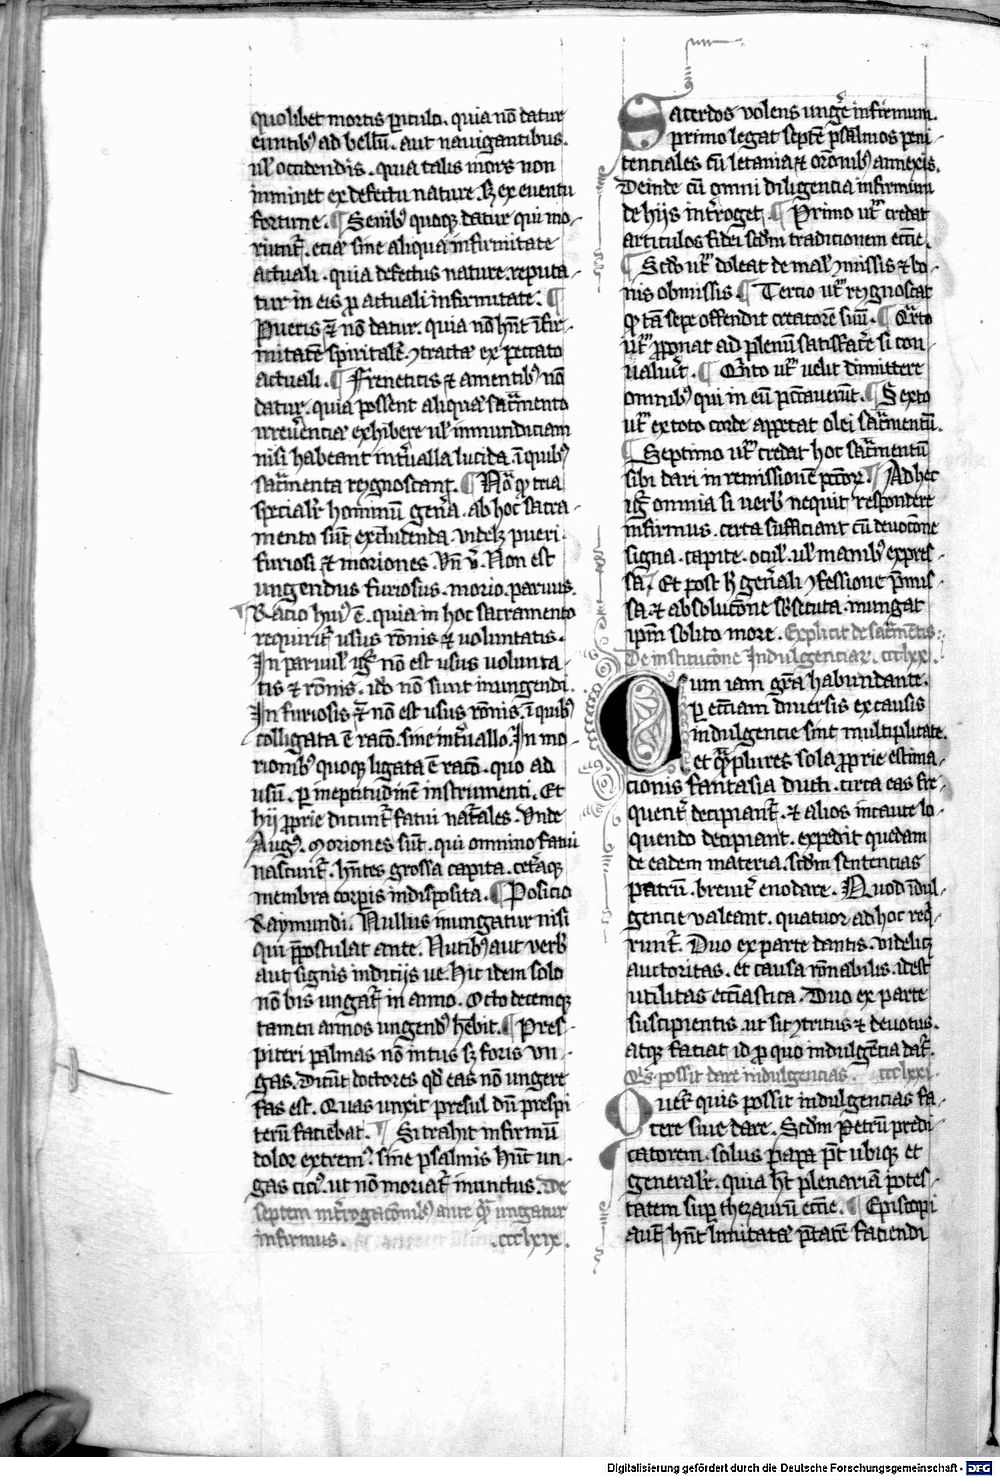 quolibet mortis ꝑiculo. quia nō datur
euntibꝯ ad bellū. aut nauigantibus.
ul̓ occidendis. quia talis mors non
inminet ex defectu nature. sꝫ ex euentu
fortune. ¶ Senibꝯ quoqꝫ datur qui mo-
riunt̄. eciā sine aliqua infirmitate
actuali. quia defectus nature. reputa-
tur in eis ꝓ actuali infirmitate. ¶
Pueris nō datur. quia nō hn̄t īfir-
mitatē spiritalē ꝯtractā ex peccato
actuali. ¶ Freneticis ⁊ amentibꝯ nō
datur. quia possent aliquā sac̄mento
irreuēnciā exhibere ul̓ inmundiciam
nisi habeant int̓ualla lucida. ī quibꝯ
sac̄menta recognoscant. ¶ Nō qꝫ tria
spēcialr̄ hominū gen̄a. ab hoc sacra-
mento sūt excludenda. videlꝫ pueri.
furiosi ⁊ moriones. Vn̄ v̄. Non est
ungendus furiosus. morio. paruus.
Racio huiꝯ ē. quia in hoc sacramento
requirit̄ usus rōnis ⁊ uoluntatis.
In paruul̓ igr̄ nō est usus uolunta-
tis ⁊ rōnis. iō nō sunt inungendi.
In furiosis nō est usus rōnis. ī quibꝯ
colligata ē racō. sine int̓uallo. In mo-
rionibꝯ quoqꝫ ligata ē racō. quo ad
usū. ꝑ ineptitudinē instrumenti. Et
hij ꝓprie dicunt̄ fatui nat̄ales. Vnde
Augꝯ. Moriones sūt. qui omnino fatui
nascunt̄. hn̄tes grossa capita. cet̄aqꝫ
membra corpis indisposita. ¶ Posicio
Raymundi. Nullus inungatur nisi
qui p̄postulat ante. Nutibꝯ aut verbꝭ
aut signis indicijs ue. Hic idem solo
nō bis ungat̄ in anno. Octo decemqꝫ
tamen annos ungendꝯ hēbit. ¶ Pres-
piteri palmas nō intus sꝫ foris un-
gas. Dicūt doctores qd̄ eas nō ungere
fas est. Quas unxit presul dū prespi
terū faciebat. ¶ Si trahit infirmū
dolor extremꝯ. sine psalmis hn̄t un-
gas ciciꝯ. ut nō moriat̄ inunctus. De
septem int̓rogacōnibꝯ ante qꝫ ungatur
infirmus. .ccclxix.
Sacerdos volens ungē infirmum.
primo legat septē psalmos peni-
tenciales cū letania ⁊ orōnibꝯ annexis.
Deinde cū omni diligencia infirmum
de hijs int̓roget. ¶ Primo utr̄ credat
articulos fidei scd̄m traditionem eccīe.
¶ Scdō utr̄ doleat de mal̓ ꝯmissis ⁊ bo-
nis obmissis. ¶ Tercio utr̄ recognoscat
qꝫ tā sepe offendit creatorē suū. ¶ Qr̄to
utr̄ ꝓponat ad plenū satisfac̄e si con-
ualuit. ¶ Qn̄to utr̄ uelit dimittere
omnibꝯ qui in eū peccauerūt. ¶ Sexto
utr̄ ex toto corde appetat olei sac̄mentū.
¶ Septimo utr̄ credat hoc sac̄mentū
sibi dari in remissionē pccōr. ¶ Ad hec
igr̄ omnia si uerbꝭ nequit respondere
infirmus. certa sufficiant cū deuocōne
signa. capite. oculꝭ. ul̓ manibꝯ expres-
sa. Et post h̄ gen̄ali ꝯfessione p̄mis-
sa ⁊ absolucōne subsecuta. inungat
ip̄m solito more. Explicit de sac̄mētis.
De institucōne Indulgenciar. ccclxx.
Cum iam gr̄a habundante.
ꝑ eccīam diuersis ex causis
indulgencie sint multiplicate.
et qꝫplures sola ꝓprie estima-
cionis fantasia ducti. circa eas fre-
quent̄ decipiant̄. ⁊ alios incaute lo-
quendo decipiant. expedit quedam
de eadem materia. scd̄m sentencias
patrū. breuit̄ enodare. Quod īdul-
gencie valeant. quatuor ad hoc req̄-
runt̄. Duo ex parte dantis. videlicꝫ
auctoritas. et causa rōnabilis. idest
utilitas eccīastica. Duo ex parte
suscipientis. ut sit ꝯtritus ⁊ deuotus.
atqꝫ faciat id ꝓ quo indulgēcia dat̄.
Qꝭs possit dare indulgencias. ccclxxi.
Querit̄ quis possit indulgencias fa-
cere siue dare. Scd̄m Petrū predi-
catorem. solus papa pōt ubiqꝫ et
generalr̄. quia ht̄ plenariā potes-
tatem suꝑ thezaurū eccīe. ¶ Episcopi
aut̄ hn̄t limitatā ptātē faciendi
Digitalisierung gefördert durch die Deutsche Forschungsgemeinschaft - DFG